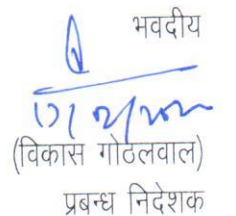 भवदीय
(विकास गोठलवाल)
प्रबन्ध निदेशक